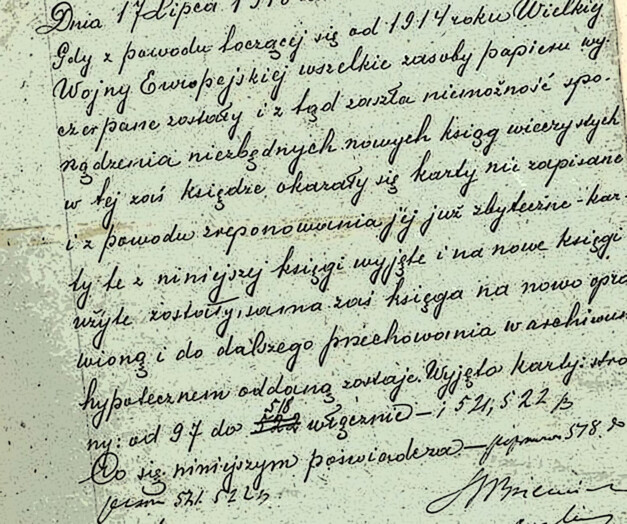 Dnia 17 Lipca 19
Gdy z powodu toczącej się od 1914 roku Wielkiej
Wojny Europejskiej wszelkie zasoby papieru wy-
czerpane zostały i z tąd zaszła niemożność spo-
rządzenia niezbędnych nowych ksiąg wieczystych
w tej zaś księdze okazały się karty nie zapisane
i z powodu zreponowania jej już zbyteczne - kar-
ty te z niniejszej księgi wyjęte i na nowe księgi
użyte zostały, sama zaś księga na nowo opra
wioną i do dalszego przechowania w archiwum
hypotecznem oddaną zostaje. Wyjęto karty: stro
ny: od 97 do 518 włącznie - i 521, 522
Co się niniejszym poświadcza - 578
521. 522